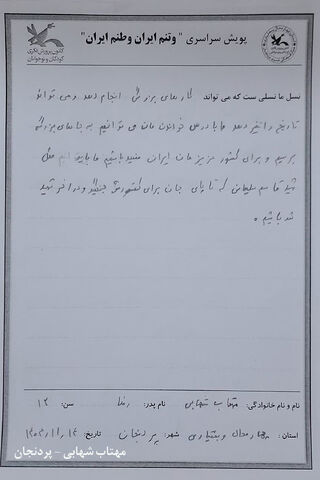 پویش سراسری "وتنم ایران وطنم ایران"
کانون پرورش فکری
کودکان و نوجوانان
نسل ما نسلی ست که می تواند کارهای بزرگی انجام دهد و می تواند
تاریخ را تغییر دهد ما با درس خواندن مان می توانیم به جاهای بزرگی
برسیم و برای کشور عزیزمان ایران مفید باشیم ما باید هم مثل
شهید قاسم سلیمانی تا پای جان برای کشورش جنگید و در آخر شهید
شد باشیم.
نام و نام خانوادگی: مهتاب شهابی نام پدر: رضا سن: ۱۲
استان: چهارمحال و بختیاری شهر: پردنجان تاریخ:
مهتاب شهابی - پردنجان